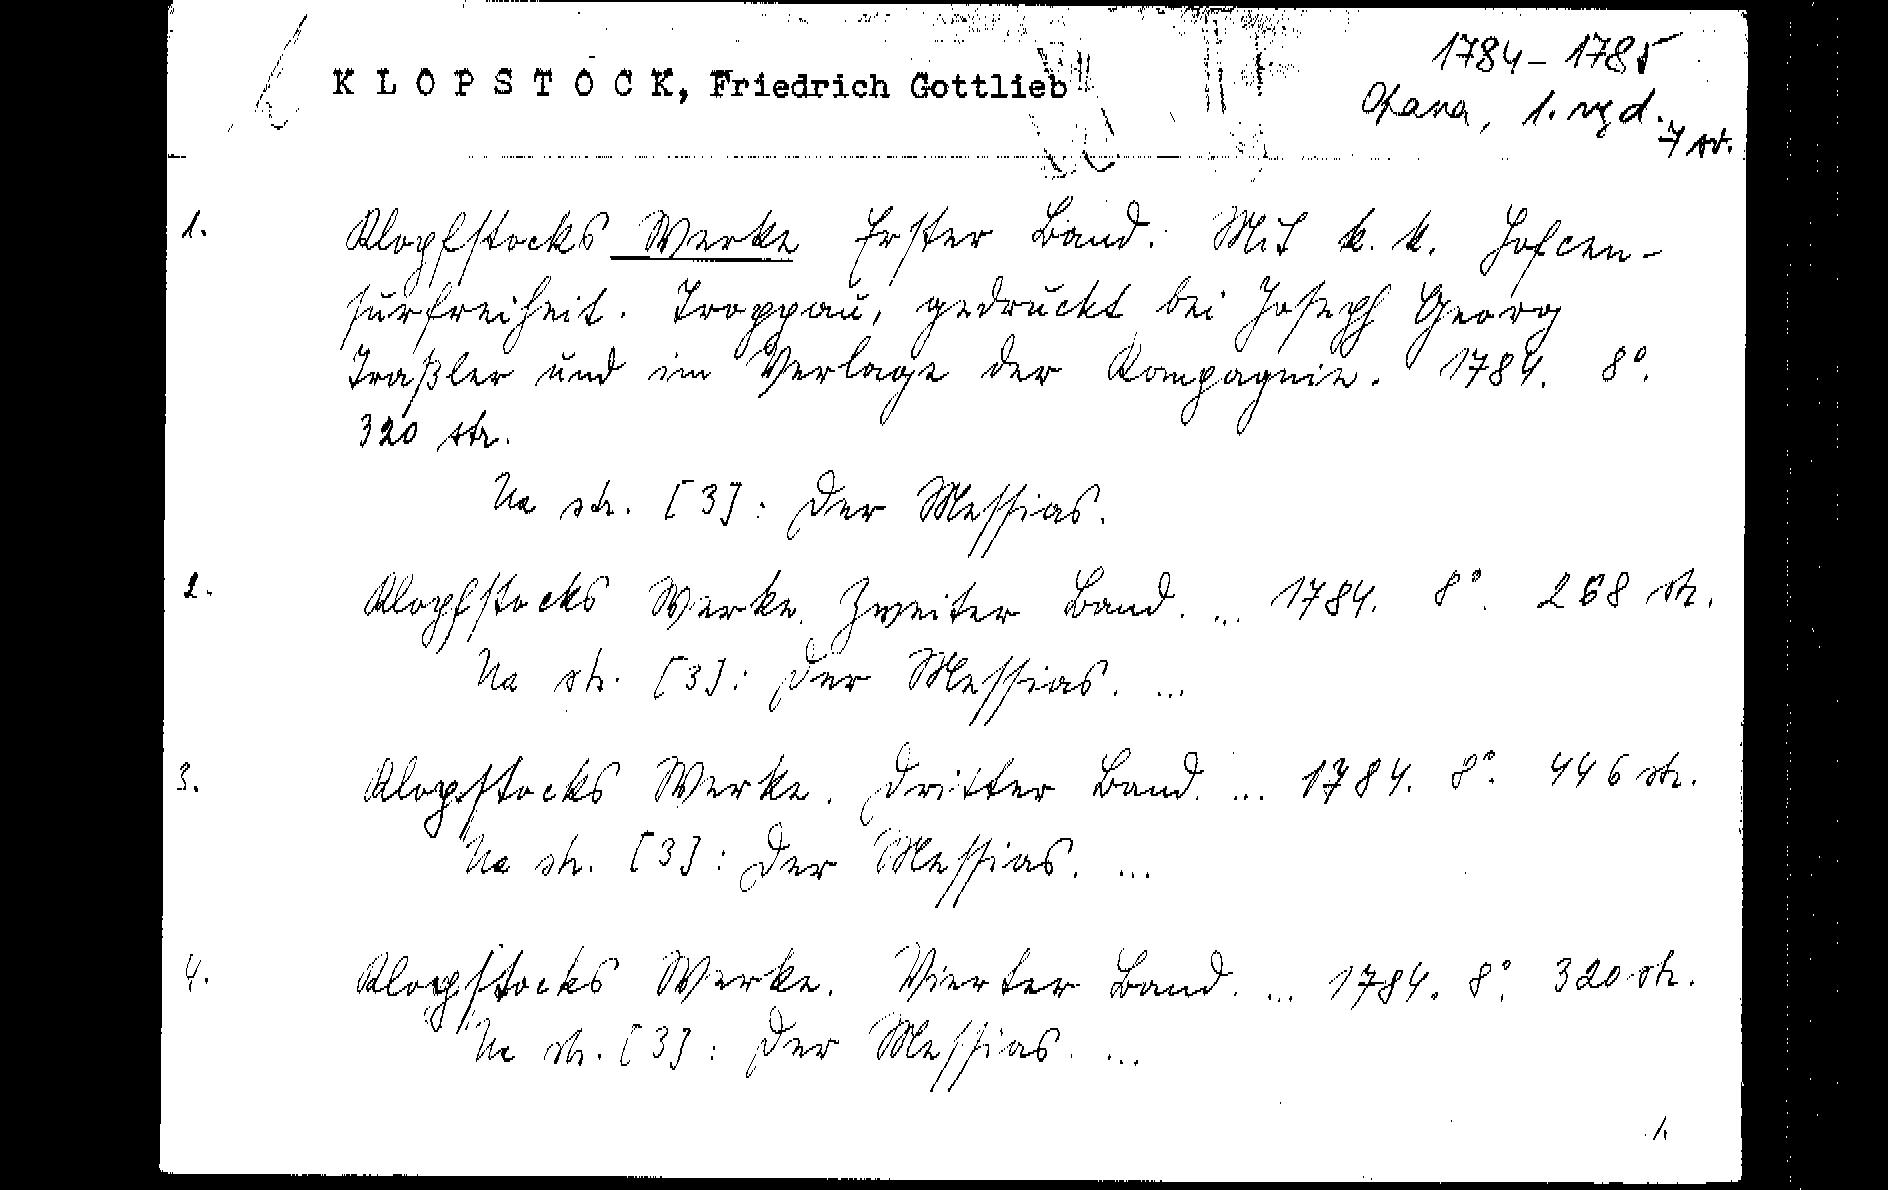 K L O P S T O C K, Friedrich Gottlieb
1784 - 1785
Opava, 1. vyd.
7 sv.
1. Klopfstocks Werke Erster Band. Mit k. k. Hofcen-
surfreiheit. Troppau, gedruckt bei Joseph Georg
Traßler und im Verlage der Kompagnie. 1784. 8°.
320 str.
Na str. [3]: Der Messias.
2. Klopfstocks Werke. Zweiter Band. ... 1784. 8°. 268 str.
Na str. [3]: Der Messias. ...
3. Klopstocks Werke. Dritter Band. ... 1784. 8°. 446 str.
Na str. [3]: Der Messias. ...
4. Klopstocks Werke. Vierter Band. ... 1784. 8°. 320 str.
Na str. [3]: Der Messias. ...
1.